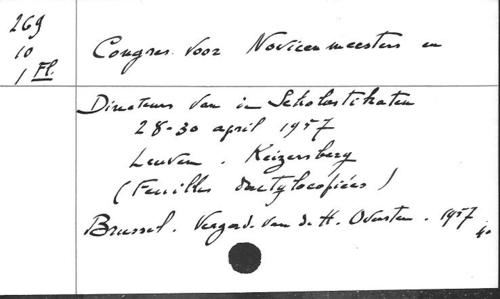 269
10
1 Fl.
Congres voor Novicenmeesters en
Directeurs van de Scholastikaten
28-30 april 1957
Leuven. Keizersberg
(Feuilles dactylocopiées)
Brussel. Vergad. van de H. Oversten. 1957
4o